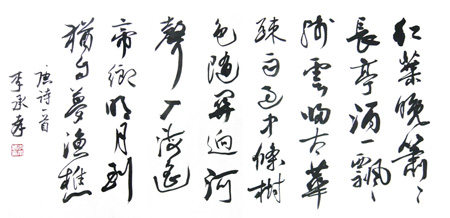 紅葉晚蕭〻
長亭酒一瓢
殘雲歸太華
疎雨過中條樹
色隨關迥河
聲入海遥
帝鄉明月到
猶自夢漁樵
唐詩首
李承